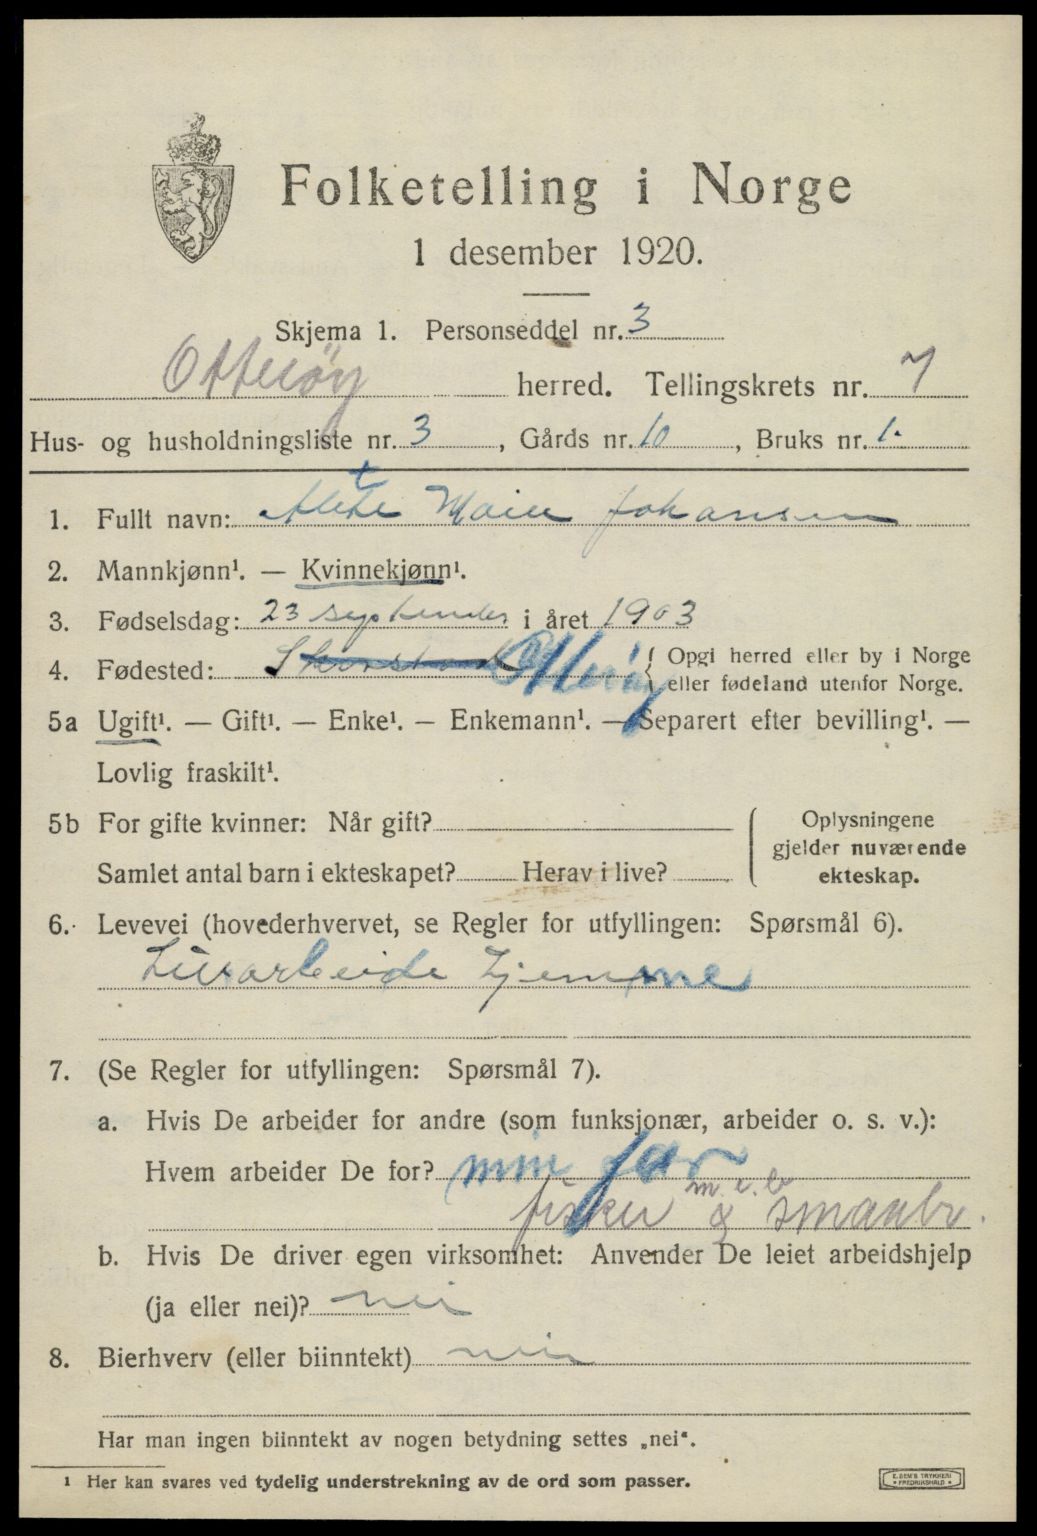 Folketelling i Norge
1 desember 1920.
Skjema 1. Personseddel nr. 3
Otterøy herred. Tellingskrets nr. 7
Hus- og husholdningsliste nr. 3, Gårds nr. 10, Bruks nr. 1.
1. Fullt navn: Alette Marie Johansen
2. Mannkjønn¹. — Kvinnekjønn¹.
3. Fødselsdag: 23 september i året 1903
4. Fødested: Otterøy { Opgi herred eller by i Norge
eller fødeland utenfor Norge.
5a Ugift¹. — Gift¹. — Enke¹. — Enkemann¹. — Separert efter bevilling¹. —
Lovlig fraskilt¹.
5b For gifte kvinner: Når gift?
Samlet antal barn i ekteskapet? Herav i live?
Oplysningene
gjelder nuværende
ekteskap.
6. Levevei (hovederhvervet, se Regler for utfyllingen: Spørsmål 6).
Husarbeide hjemme
7. (Se Regler for utfyllingen: Spørsmål 7).
a. Hvis De arbeider for andre (som funksjonær, arbeider o. s. v.):
Hvem arbeider De for? min far
fisker m.e.b & smaabr.
b. Hvis De driver egen virksomhet: Anvender De leiet arbeidshjelp
(ja eller nei)? nei
8. Bierhverv (eller biinntekt) nei
Har man ingen biinntekt av nogen betydning settes „nei“.
¹ Her kan svares ved tydelig understrekning av de ord som passer.
E. SEM'S TRYKKERI
FREDRIKSHALD